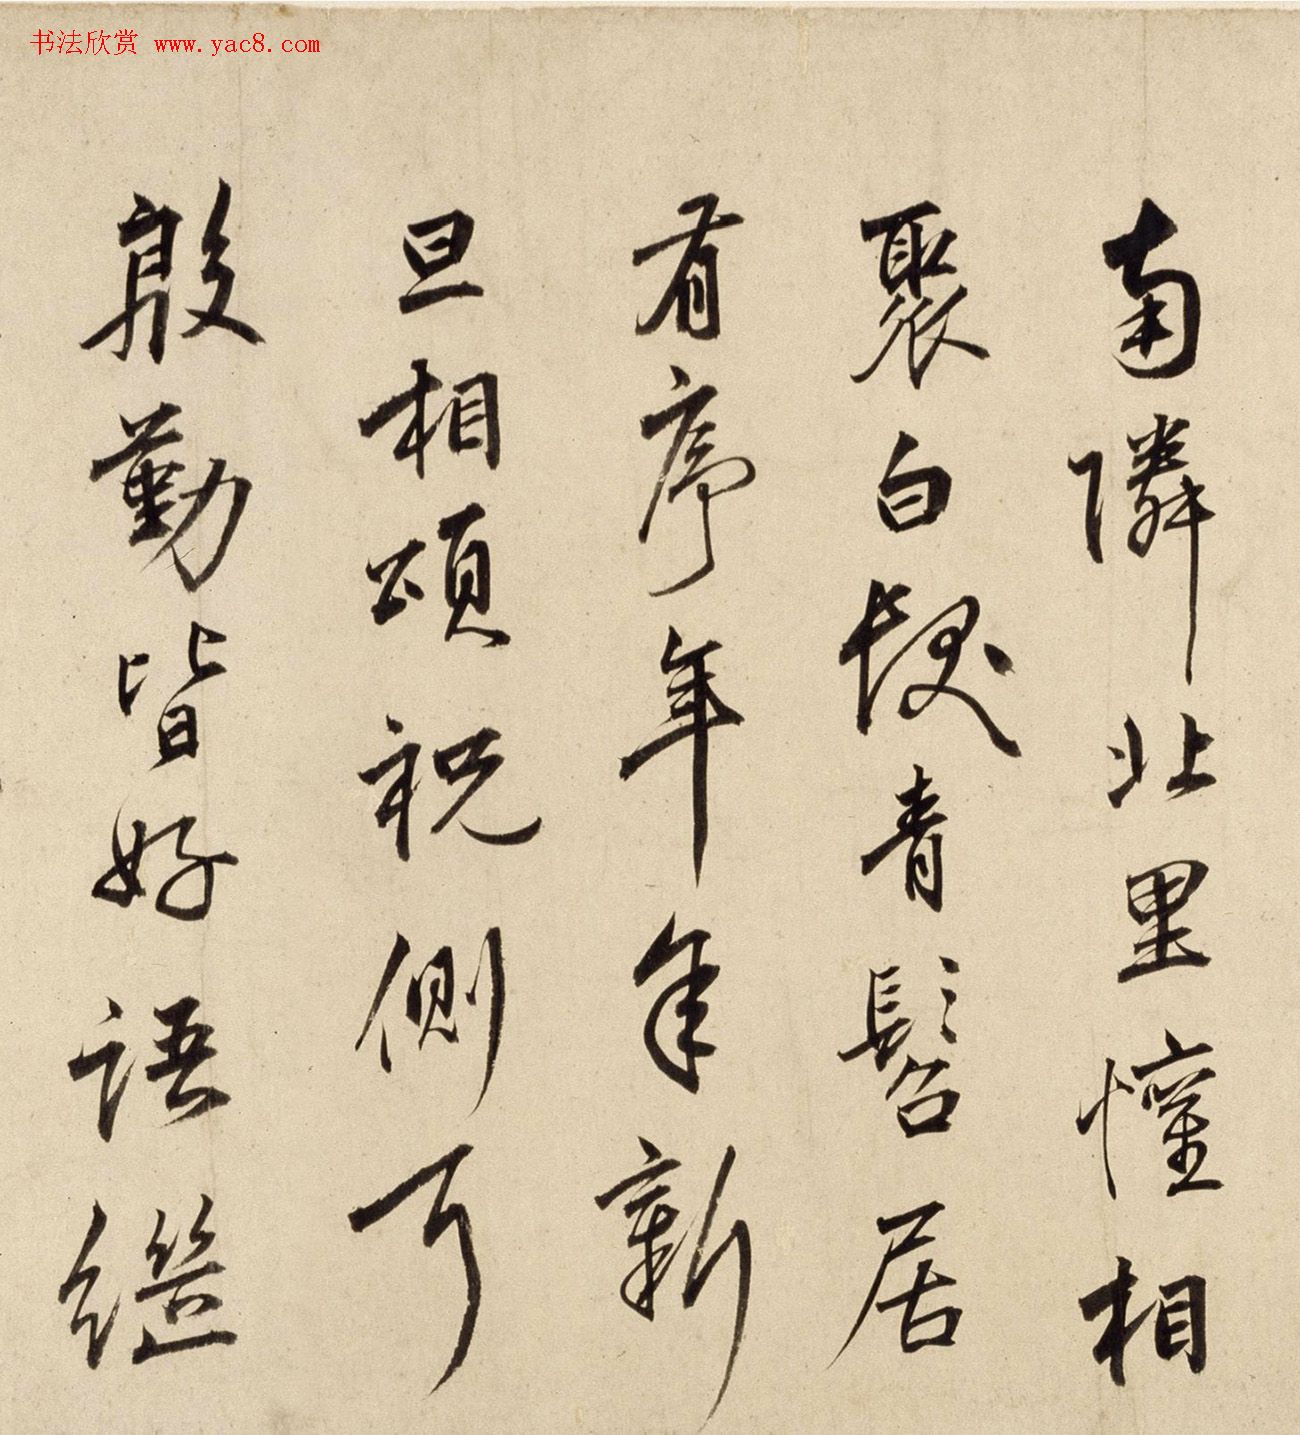 书法欣赏 www.yac8.com
南隣北里懽相
聚白髮青髫居
有序年年年新
旦相頌祝側耳
殷勤皆好語繼